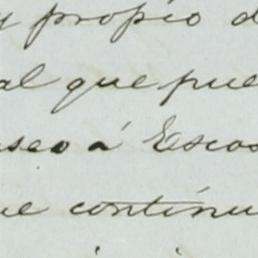 y propio d
al que pue
seo á Escos
ue continu